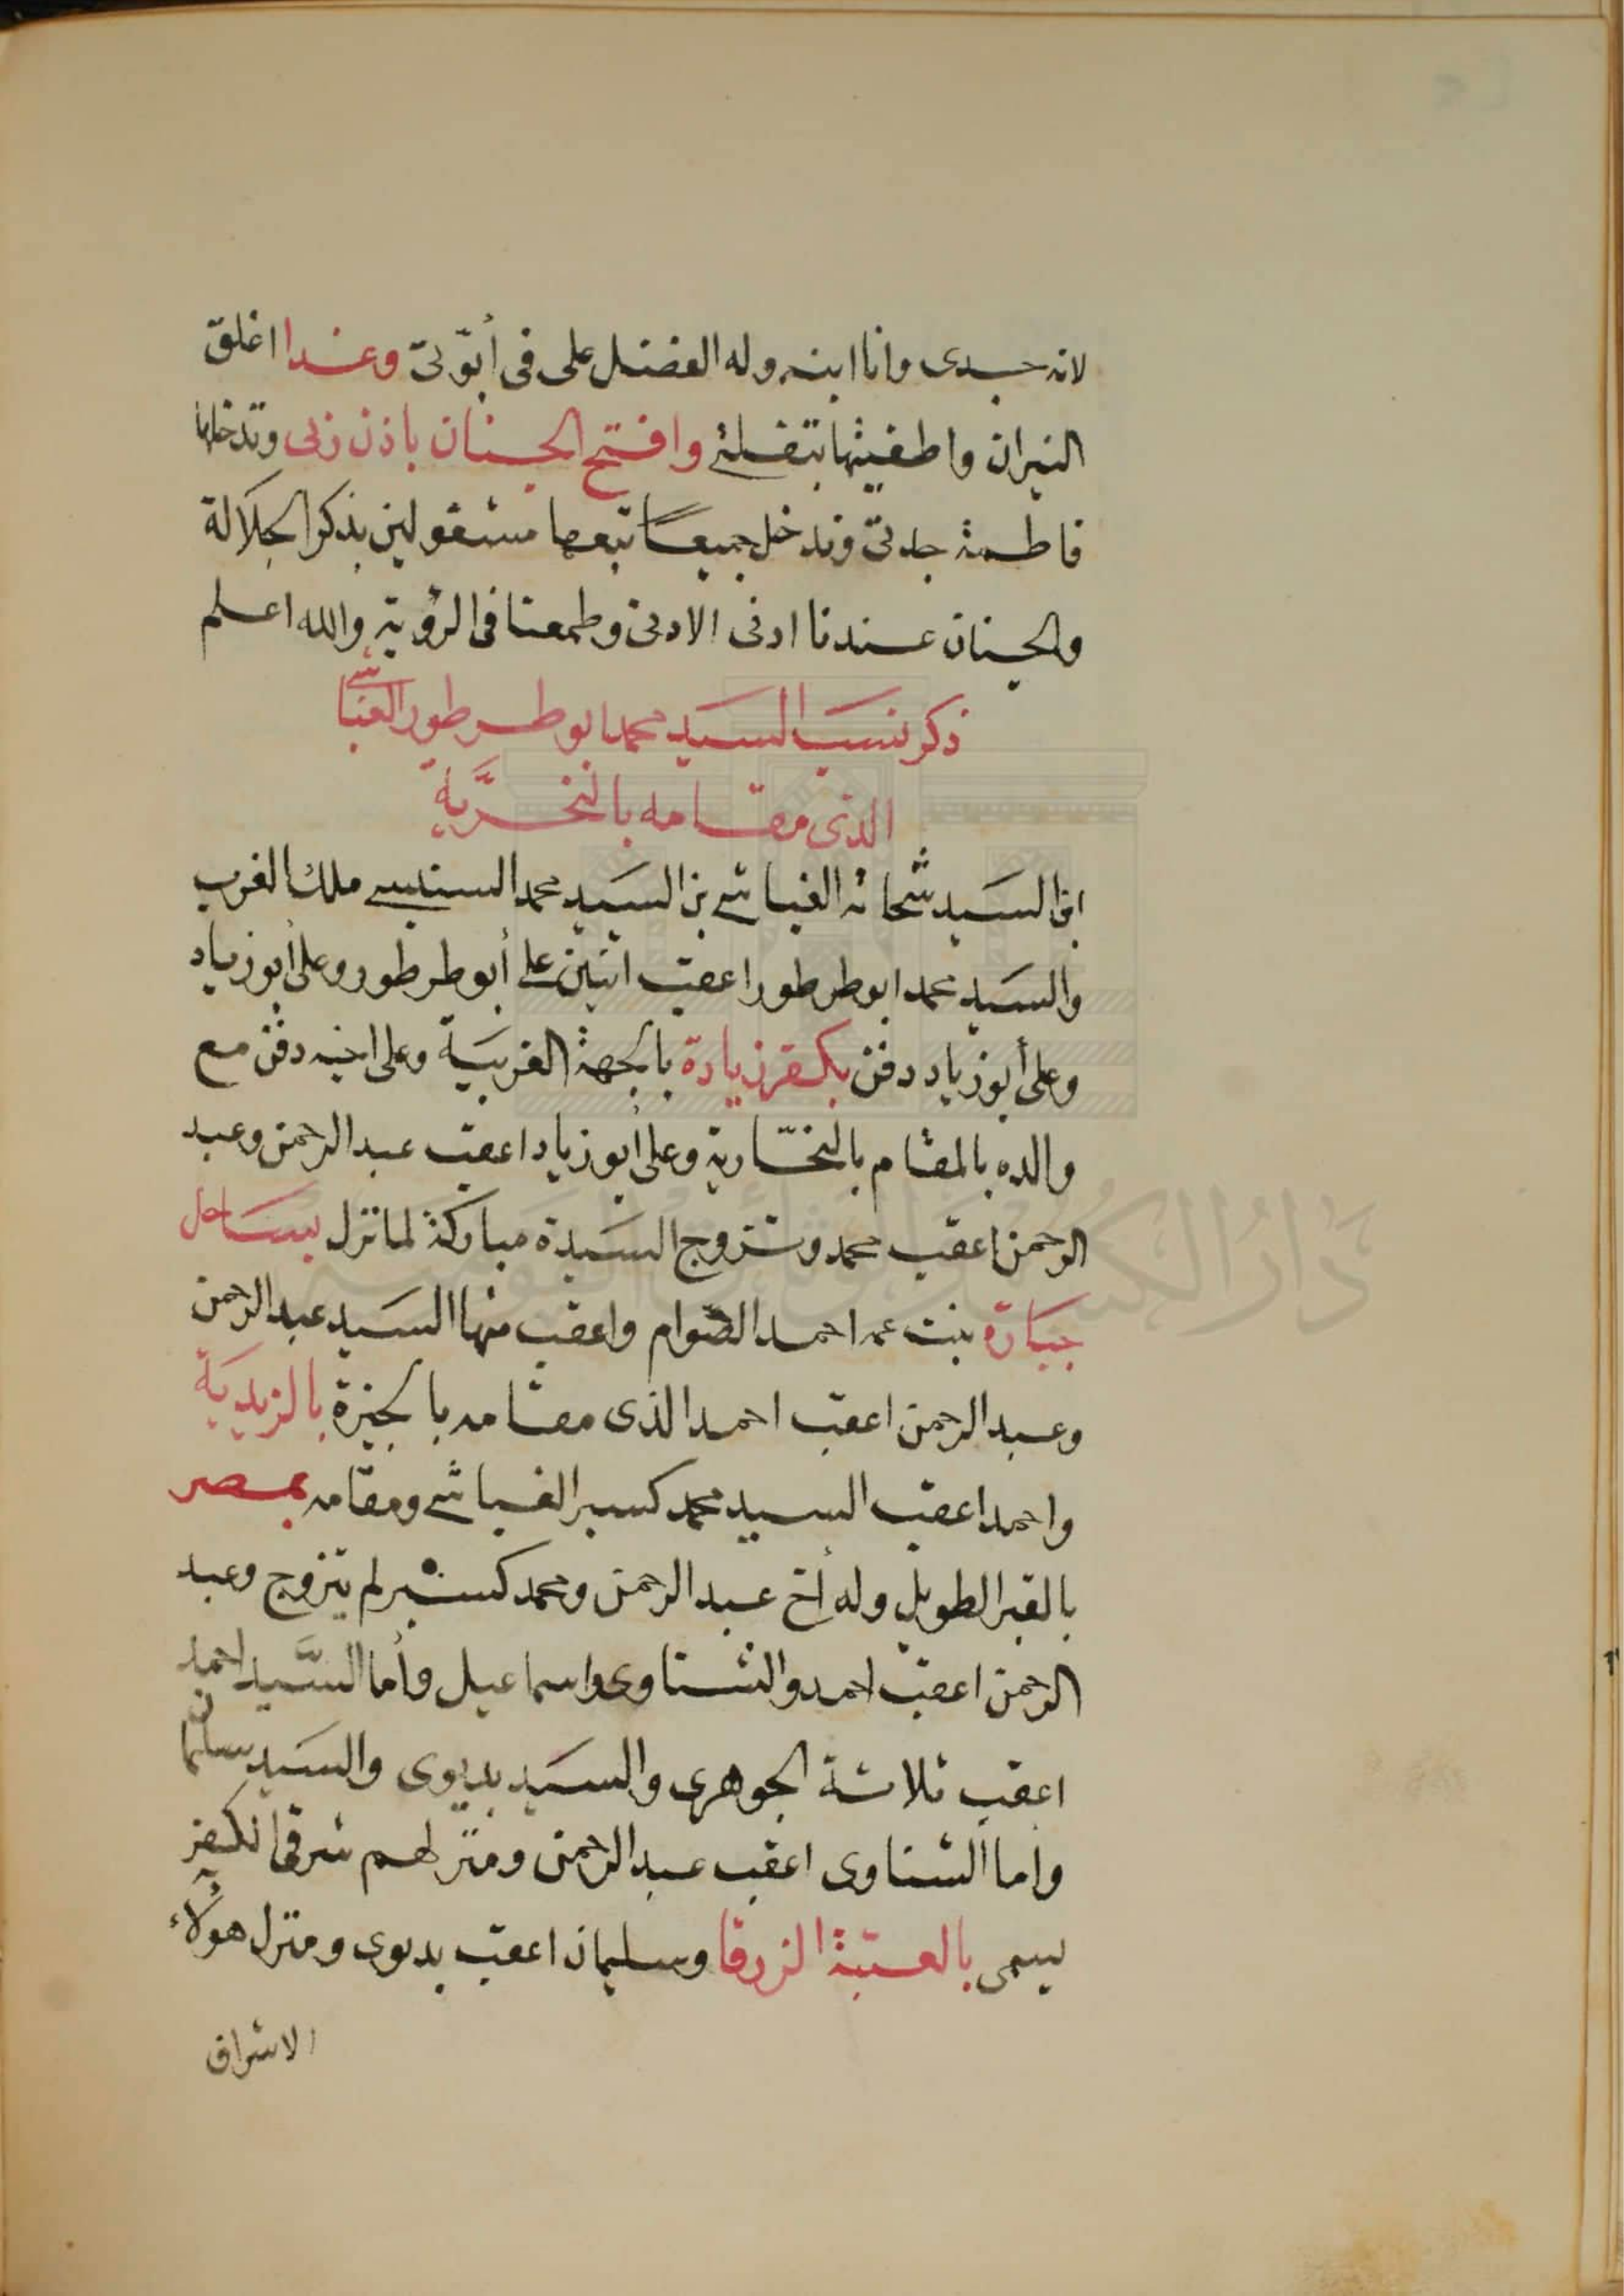 لانه جدى وانا ابنه وله الفضل على فى أبوّتىّ وغدا اغلق
النيران واطفيتها بتفلتى وافتح الجنان باذن ربى وتدخلها
فاطمة جدتىّ وندخل جميعًا تبعها مشغولين بذكر الجلالة
والجنان عندنا ادنى الادنى وطمعنا فى الرؤية والله اعلم
ذكر نسب السيد محمد ابو طرطور الغباشى
الذى مقامه بالنخريَّة
ابن السيد شحاته الغباشى بن السيد محمد السنبسى ملك الغرب
والسيد محمد ابوطرطور اعقب اثنين على أبوطرطور وعلى أبوزياد
وعلى أبوزياد دفن بكفر زيادة بالجهة الغربية وعلى اخيه دفن مع
والده بالمقام بالنخّارية وعلى أبوزياد اعقب عبد الرحمن وعبد
الرحمن اعقب محمد وتزوج السيدة مباركة لما نزل بساحل
جبارة بنت عمه احمد الصّوام واعقب منها السيد عبد الرحمن
وعبد الرحمن اعقب احمد الذى مقامه بالجيزة بالزيدية
واحمد اعقب السيد محمد كسبر الغباشى ومقامه بمصر
بالقبر الطويل وله أخ عبد الرحمن ومحمد كسبر لم يتزوج وعبد
الرحمن اعقب احمد والشناوى واسماعيل وأما السَّيد احمد
اعقب ثلاثة الجوهرى والسيد بديوى والسيد سليمان
واما الشناوى اعقب عبد الرحمن ومنزلهم شرقى الكفر
يسمى بالعتبة الزرقا وسليمان اعقب بدوى ومنزل هؤلاء
الاشراف
دار الكتب والوثائق القومية